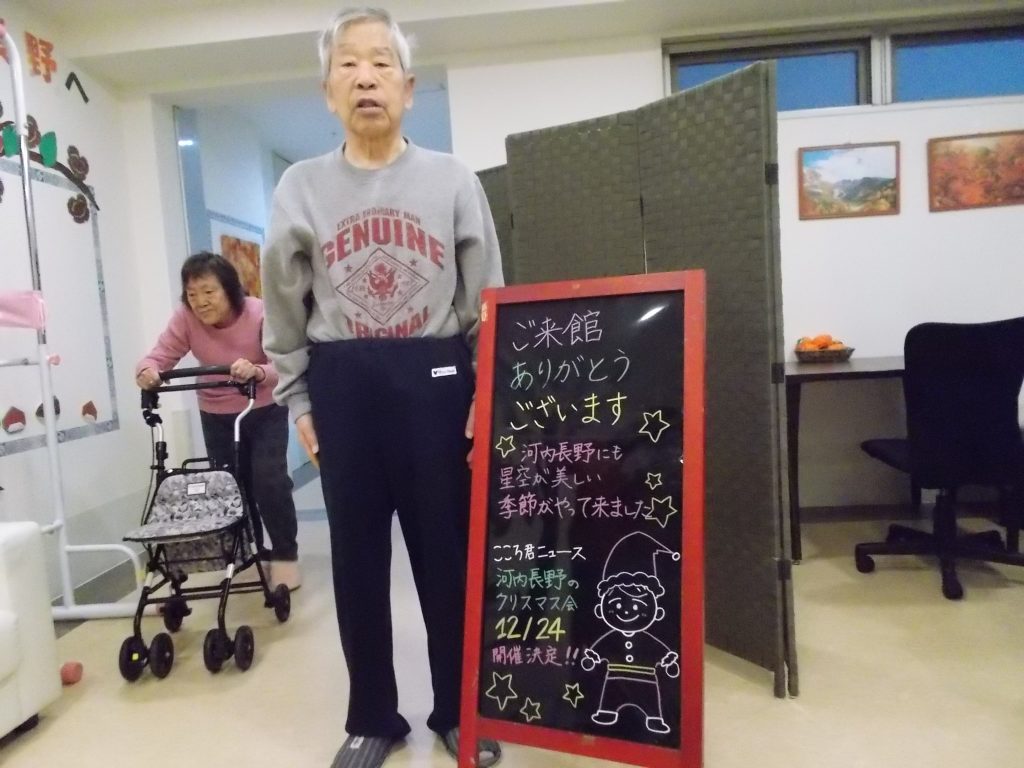 野へ
EXTRA ORDINARY MAN
GENUINE
ORIGINAL
ご来館
ありがとう
ございます
河内長野にも
星空が美しい
季節がやって来ました
こころ君ニュース
河内長野の
クリスマス会
12/24
開催決定!!